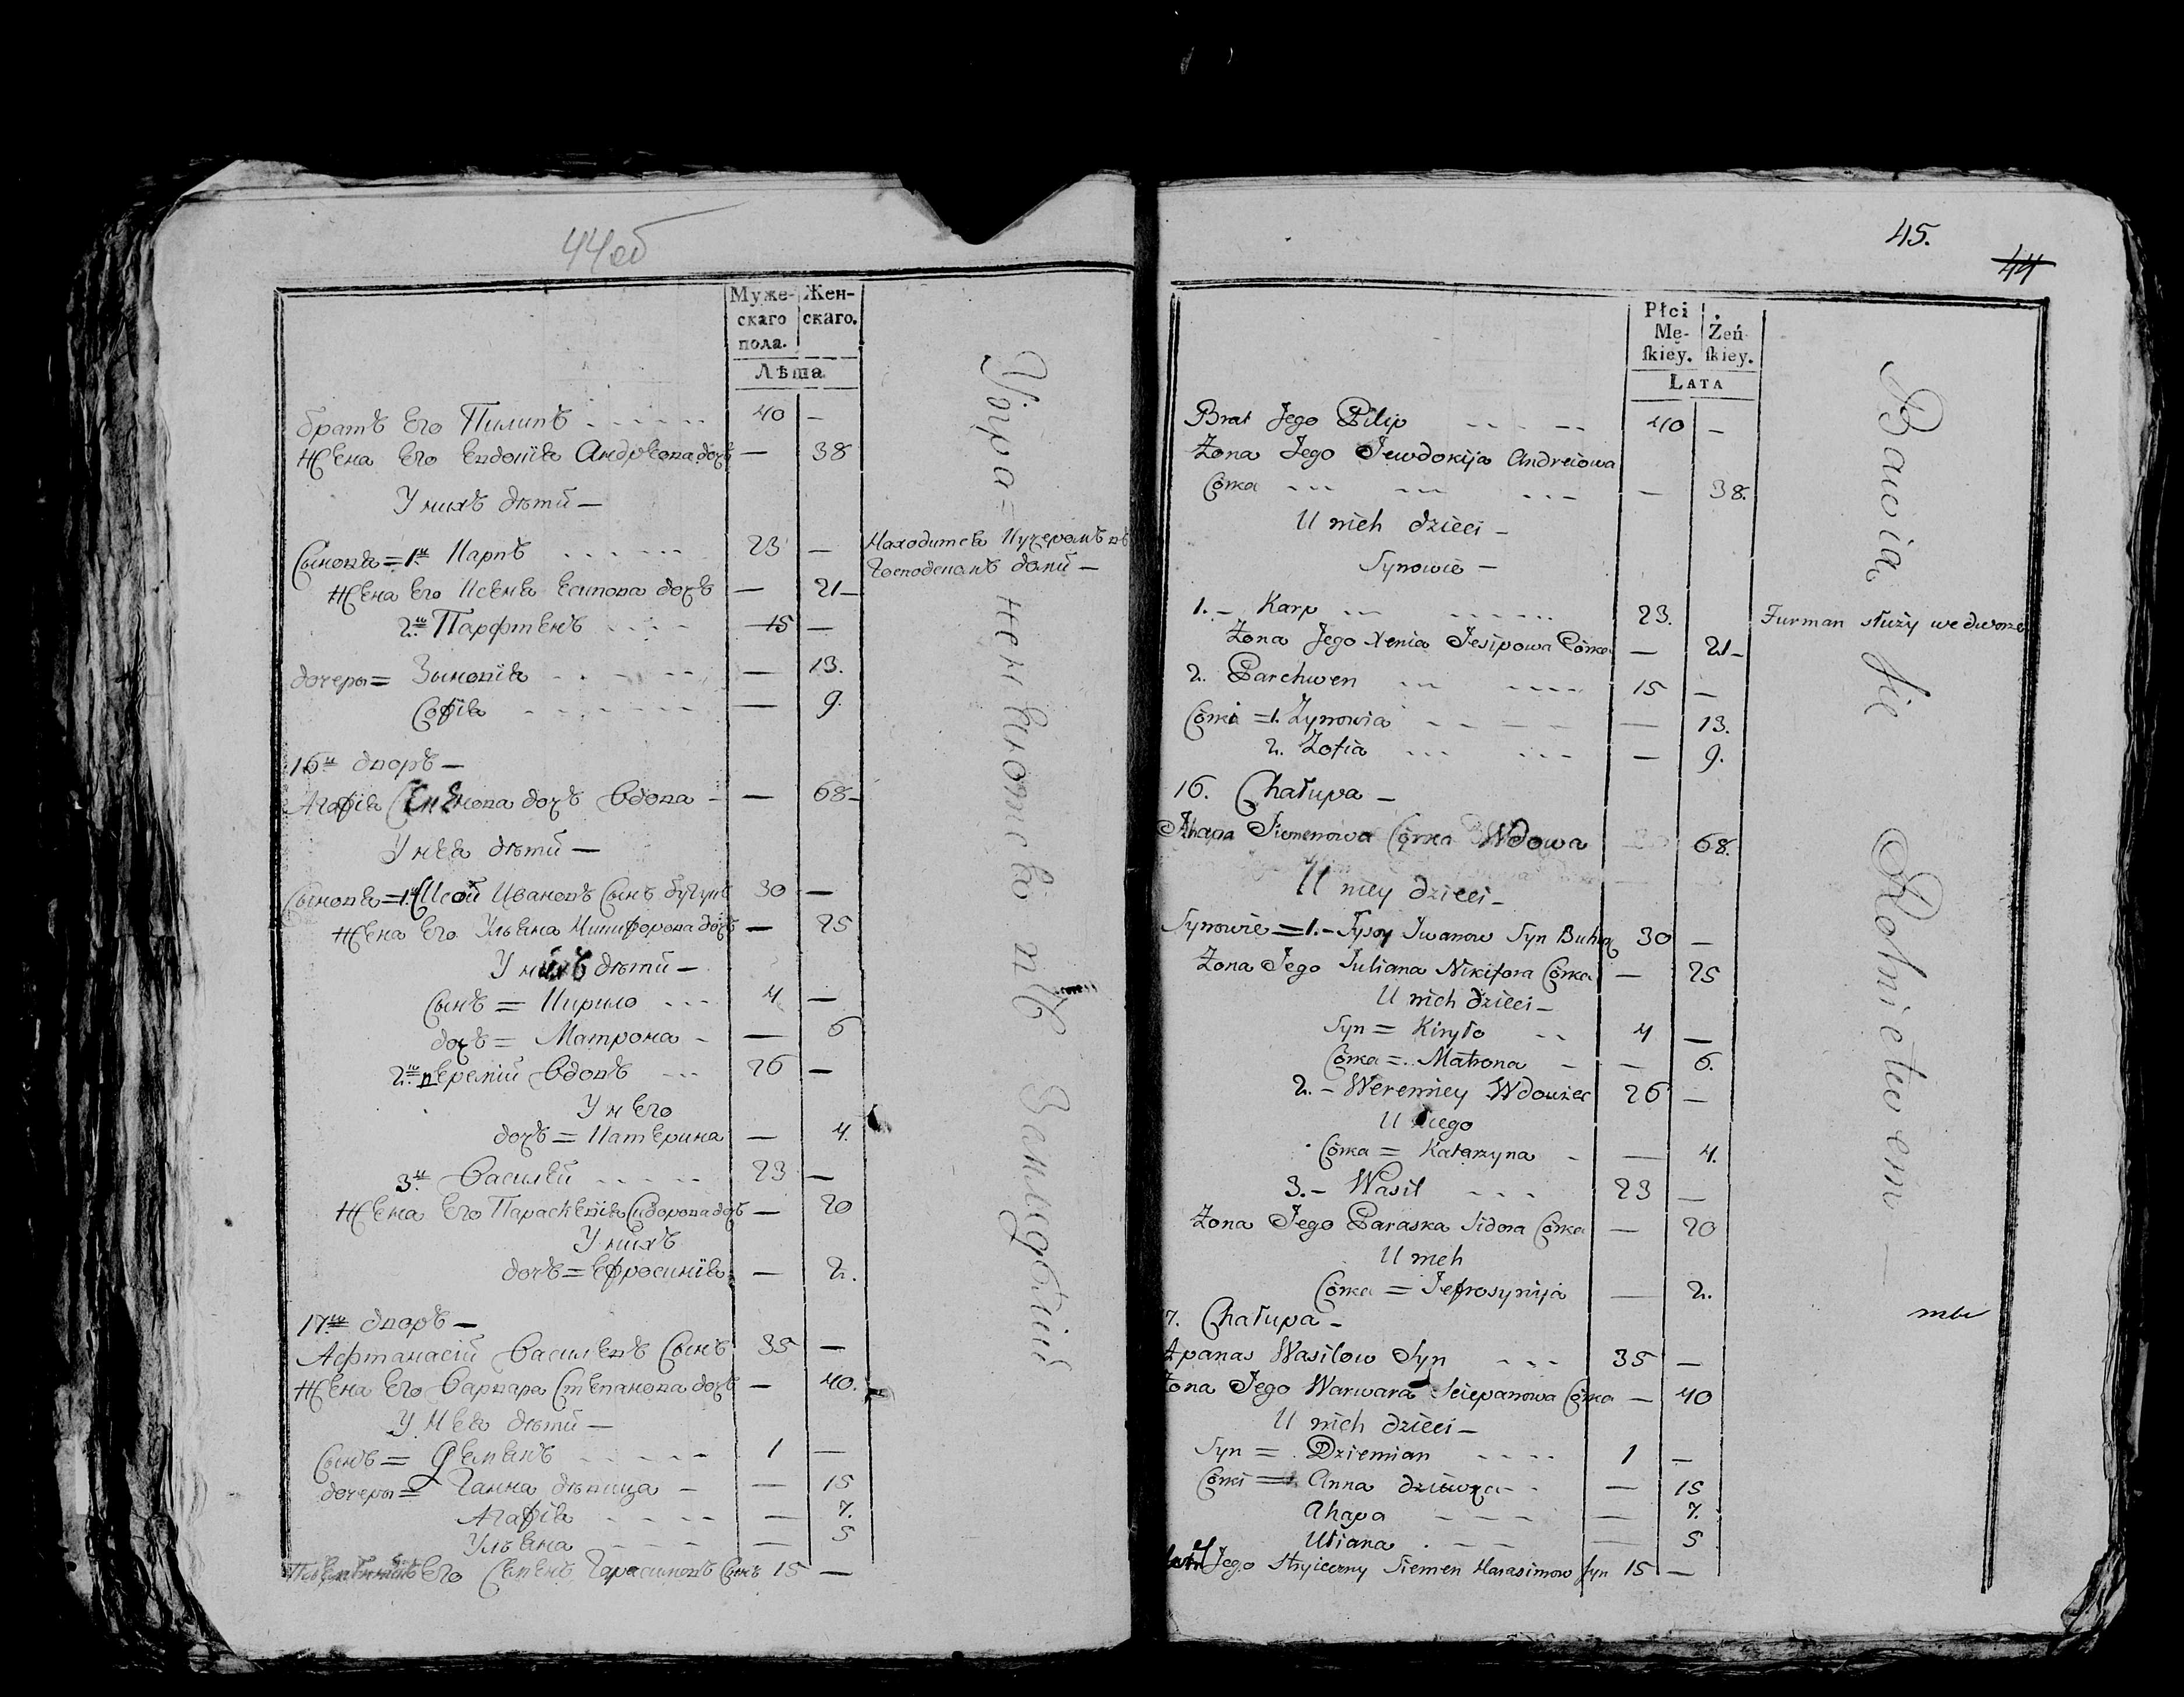 44 об
Муже-
скаго
пола.
Жен-
скаго.
Лѣта
братъ Его Пилипъ 40 —
Жена Его Евдокія Андрѣева дочь — 38
У нихъ дѣти —
Сыновя = 1й Карпъ 23 — Находится Кучеромъ въ
Господскомъ домѣ —
Жена Его Ксеня Есипова дочь — 21 —
2й Парфтенъ 15 —
дочеры = Зыновія — 13.
Софія — 9.
16й дворъ —
Агафія Семенова дочь вдова — 68 —
У нея дѣти —
Сыновя = 1й Сысой Ивановъ Сынъ 30 —
Жена Его Ульяна Никифорова дочь — 25
У нихъ дѣти —
Сынъ = Кирило 4 —
дочь = Матрона — 6
2й веремій вдовъ 26 —
У него
дочь = Катерина — 4.
3й Василей 23 —
Жена Его Параскевія Сидорова дочь — 20
У нихъ
дочь = Ефросинія — 2.
17й дворъ —
Афтанасій Васильевъ Сынъ 35 —
Жена Его Варвара Степанова дочь — 40.
У нея дѣти —
Сынъ = Демянъ 1 —
дочеры = Ганна дѣвица — 15
Агафія — 7.
Ульяна — 5
Его Семенъ Гарасимовъ Сынъ 15 —
45.
44
Płci
Mę-
ſkiey.
Żeń-
ſkiey.
LATA
Brat Jego Pilip 40 —
Żona Jego Jewdokija Andreiowa
Córka — 38.
U nich dzieci —
Synowie —
1. — Karp 23. Furman służy we dworze
Żona Jego Xenia Jesipowa Córka — 21 —
2. Parchwen 15 —
Córki = 1. Zynowia — 13.
2. Zofia — 9.
16. Chałupa —
Ahapa Siemenowa Córka Wdowa 68.
U niey dzieci —
Synowie = 1. — Sysoy Iwanow Syn 30 —
Żona Jego Juliana Nikifora Córka — 25
U nich dzieci —
Syn = Kiryło 4 —
Córka = Matrona — 6.
2. — Weremiey Wdowiec 26 —
U niego
Córka = Katarzyna — 4.
3. — Wasil 23 —
Żona Jego Paraska Sidora Córka — 20
U nich
Córka = Jefrosynija — 2.
7. Chałupa —
Apanas Wasilow Syn 35 —
Żona Jego Warwara Sciepanowa Córka — 40
U nich dzieci —
Syn = Dziemian 1 —
Córki = Anna dziewka — 15
Ahapa — 7.
Uliana — 5
Jego Stryieczny Siemen Harasimow Syn 15 —
Bawią się Rolnictwem —